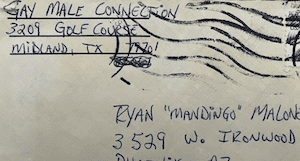 GAY MALE CONNECTION
3209 GOLF COURSE
MIDLAND, TX
RYAN "MANDINGO" MALON
3529 W. IRONWOOD